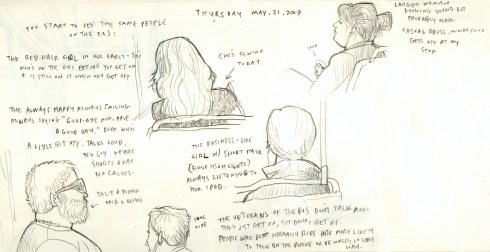 THURSDAY MAY. 31, 2007
YOU START TO SEE THE SAME PEOPLE
ON THE BUS!
THE RED HAIR GIRL IN HER EARLY - 30s
WHO'S ON THE BUS BEFORE YOU GET ON
& IS STILL ON IT WHEN YOU GET OFF
SHE'S SEWING
TODAY
LARGER WOMAN
LOOKING YOUNG BUT
PROBABLY OLDER.
CASUAL DRESS,
GETS OFF AT MY
STOP
THE ALWAYS HAPPY ALWAYS SMILING
ALWAYS SAYING "GOOD-BYE NOW, HAVE
A GOOD DAY," DUDE WHO
A LITTLE BIT OFF. TALKS LOUD.
BIG GUY. WEARS
SHORTS & HAS
NO CALVES.
SALT & PEPPER
HAIR & BEARD
THE BUSINESS-LIKE
GIRL W/ SHORT HAIR
(BLOND HIGHLIGHTS)
ALWAYS LISTENING TO
HER IPOD.
SOME
DUDE
THE VETERANS OF THE BUS DON'T TALK MUCH
THEY JUST GET ON, SIT DOWN, GET OFF.
PEOPLE WHO DON'T NORMALLY RIDE ARE MORE LIKELY
TO TALK ON THE PHONE OR BE NOISY IN SOME
WAY.